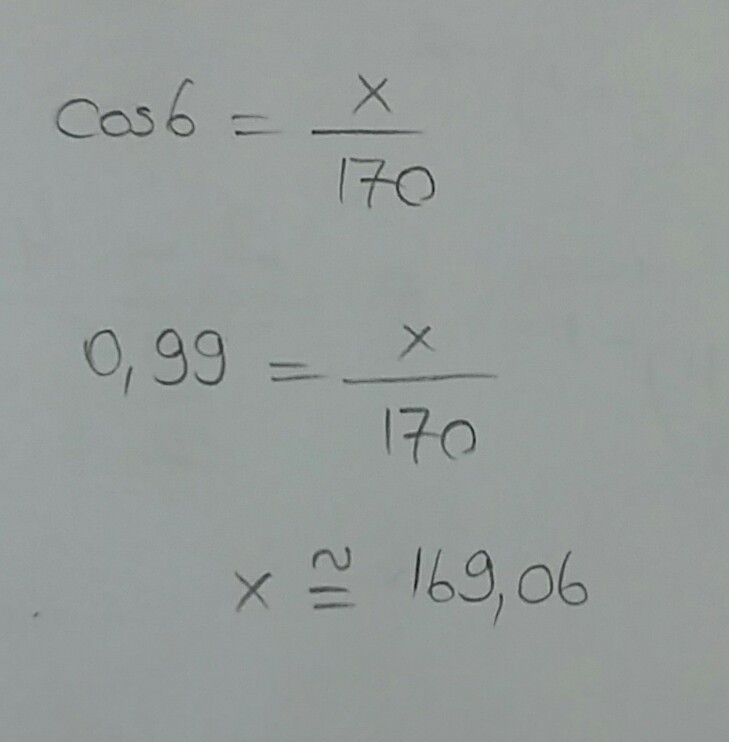 cos6 = x/170
0,99 = x/170
x ≅ 169,06